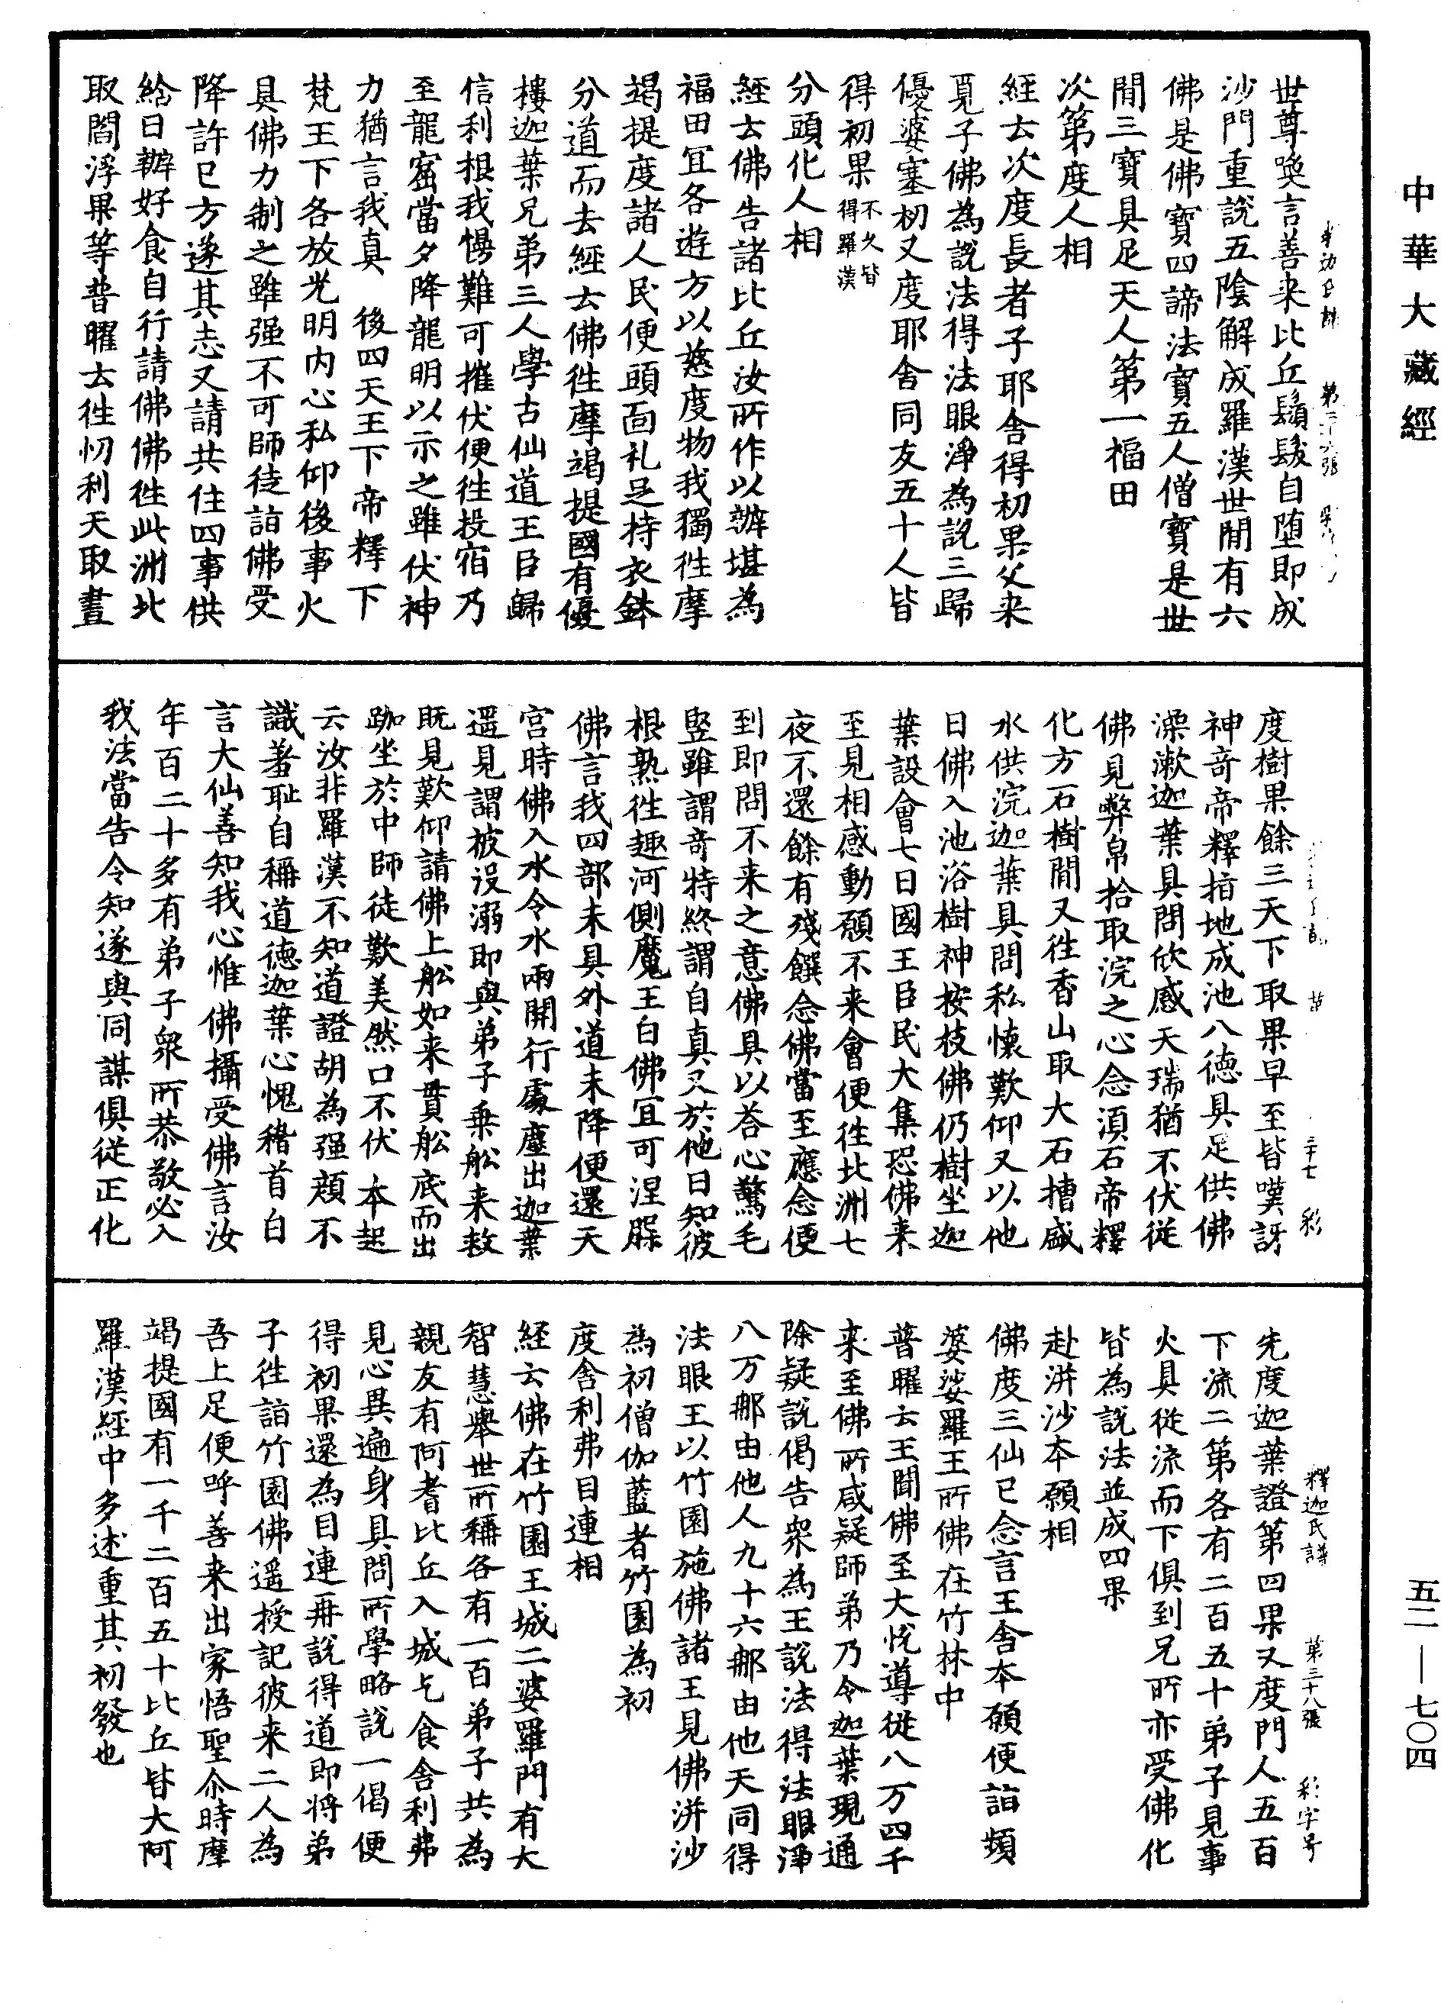 中華大藏經
世尊喚言善来比丘鬚髮自堕即成
沙門重說五陰解成羅漢世間有六
佛是佛寳四諦法寳五人僧寳是世
間三寳具足天人第一福田
次第度人相
經云次度長者子耶舍得初果父来
覓子佛為說法得法眼淨為說三歸
優婆塞初又度耶舍同友五十人皆
得初果不久皆得羅漢
分頭化人相
經云佛告諸比丘汝所作以辦堪為
福田冝各遊方以慈度物我獨徃摩
竭提度諸人民便頭面礼足持衣鉢
分道而去經云佛徃摩竭提國有優
樓迦葉兄弟三人學古仙道王臣歸
信利根我慢難可摧伏便徃投宿乃
至龍窟當夕降龍明以示之雖伏神
力猶言我真 後四天王下帝釋下
梵王下各放光明内心私仰後事火
具佛力制之雖强不可師徒詣佛受
降許已方遂其志又請共住四事供
給日辦好食自行請佛佛徃此洲北
取閻浮果等普曜云徃忉利天取晝
度樹果餘三天下取果早至皆嘆訝
神奇帝釋指地成池八德具足供佛
澡漱迦葉具問欣感天瑞猶不伏從
佛見弊帛拾取浣之心念湏石帝釋
化方石樹間又徃香山取大石槽盛
水供浣迦葉具問私懷歎仰又以他
日佛入池浴樹神按枝佛仍樹坐迦
葉設會七日國王臣民大集恐佛来
至見相感動願不来會便徃北洲七
夜不還餘有殘饌念佛當至應念便
到即問不来之意佛具以荅心驚毛
竪雖謂竒特終謂自真又於他日知彼
根熟徃趣河側魔王白佛冝可涅槃
佛言我四部未具外道未降便還天
宫時佛入水令水兩開行處塵出迦葉
遥見謂被没溺即與弟子乗舩来救
既見歎仰請佛上舩如来貫舩底而出
跏坐於中師徒歎美然口不伏 本起
云汝非羅漢不知道證胡為强顔不
識羞耻自稱道德迦葉心愧稽首白
言大仙善知我心惟佛攝受佛言汝
年百二十多有弟子衆所恭敬必入
我法當告令知遂與同謀俱從正化
釋迦氏譜 第三十八張 彩字号
先度迦葉證第四果又度門人五百
下流二第各有二百五十弟子見事
火具從流而下俱到兄所亦受佛化
皆為說法並成四果
赴洴沙本願相
佛度三仙已念言王舍本願便詣頻
婆娑羅王所佛在竹林中
普曜云王聞佛至大恱導從八万四千
来至佛所咸疑師弟乃令迦葉現通
除疑說偈告衆為王說法得法眼淨
八万那由他人九十六那由他天同得
法眼王以竹園施佛諸王見佛洴沙
為初僧伽藍者竹園為初
度舍利弗目連相
經云佛在竹園王城二婆羅門有大
智慧舉世所稱各有一百弟子共為
親友有阿耆比丘入城乞食舍利弗
見心異遍身具問所學略說一偈便
得初果還為目連再說得道即將弟
子徃詣竹園佛遥授記彼来二人為
吾上足便呼善来出家悟聖尒時摩
竭提國有一千二百五十比丘皆大阿
羅漢經中多述重其初發也
五二—七〇四